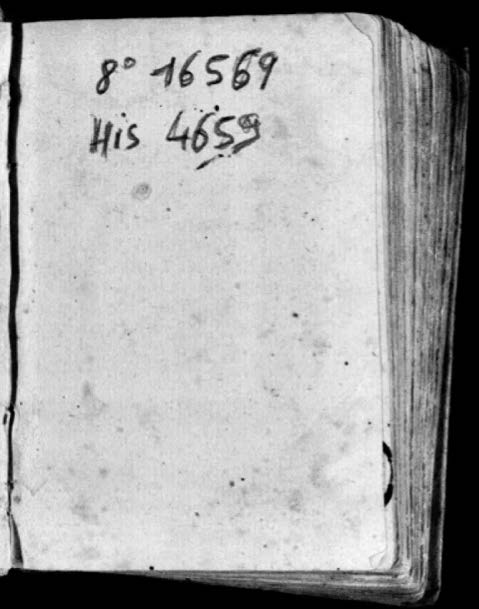 8° 16569
His 4659